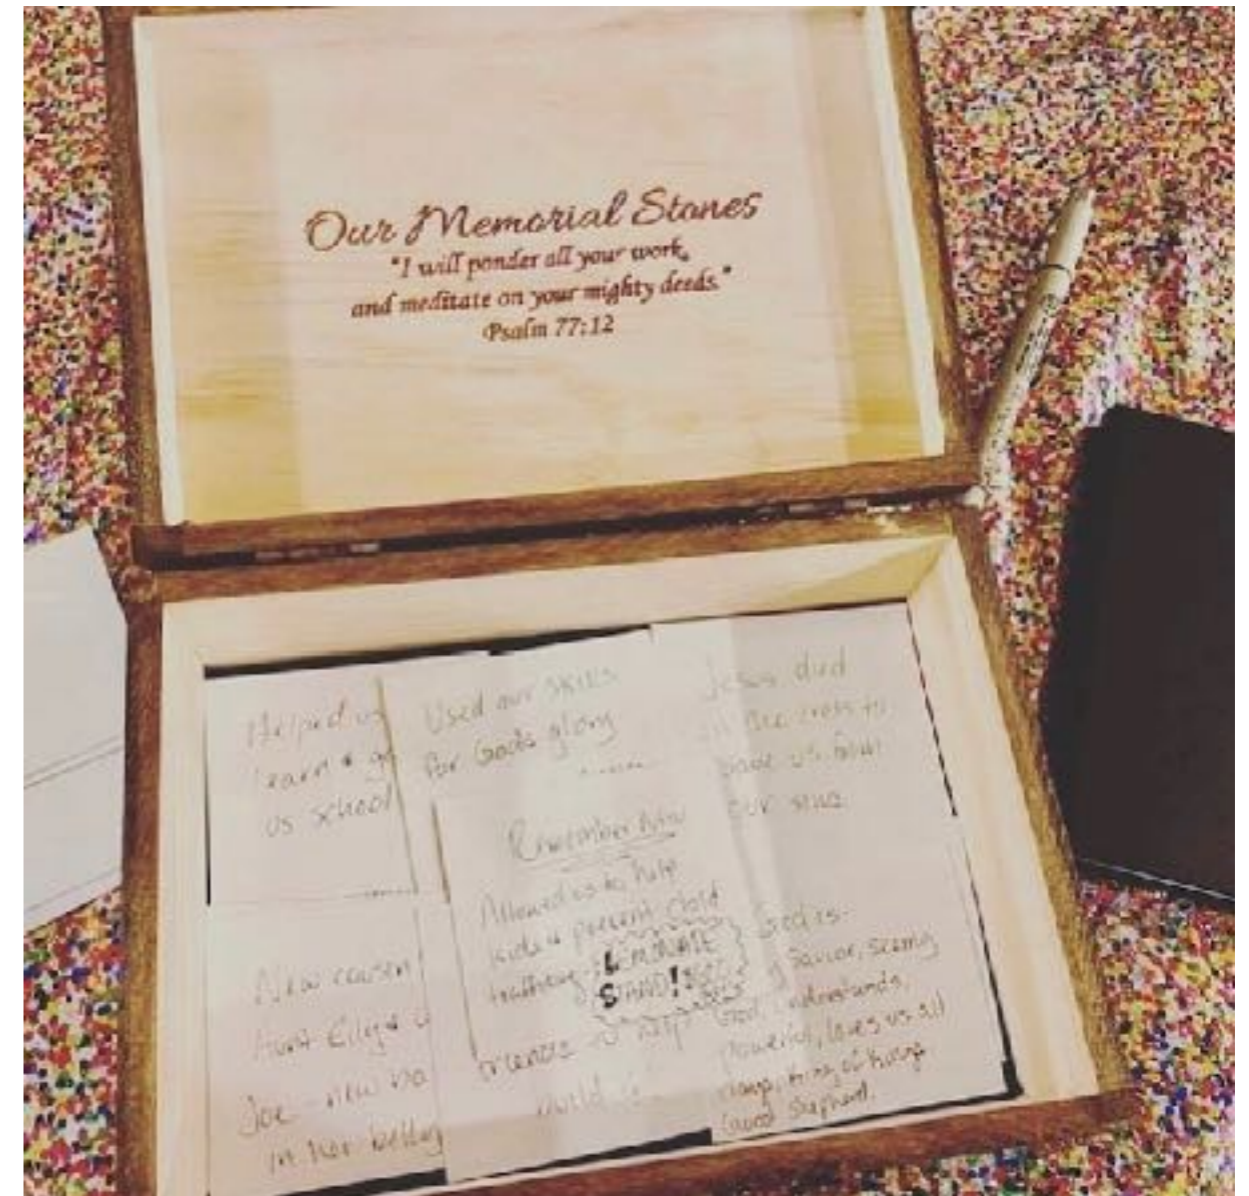 Our Memorial Stones
"I will ponder all your work,
and meditate on your mighty deeds."
Psalm 77:12
Helped us
learn &
us school
Used our skills
for Gods glory
Jesus died
on the cross to
save us from
our sins.
Remember
Allowed us to help
kids & prevent child
trafficking
LEMONADE
STAND!
help
world
New cousin
Aunt
Joe - new
in her belly
God is-
Savior, seeing
God, understands,
powerful, loves us all
king of kings
Good Shepherd.